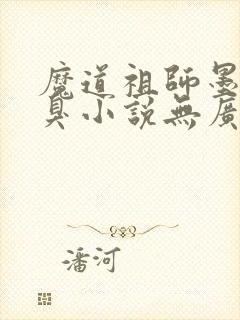 魔道祖師墨
臭小說無廣
潘河